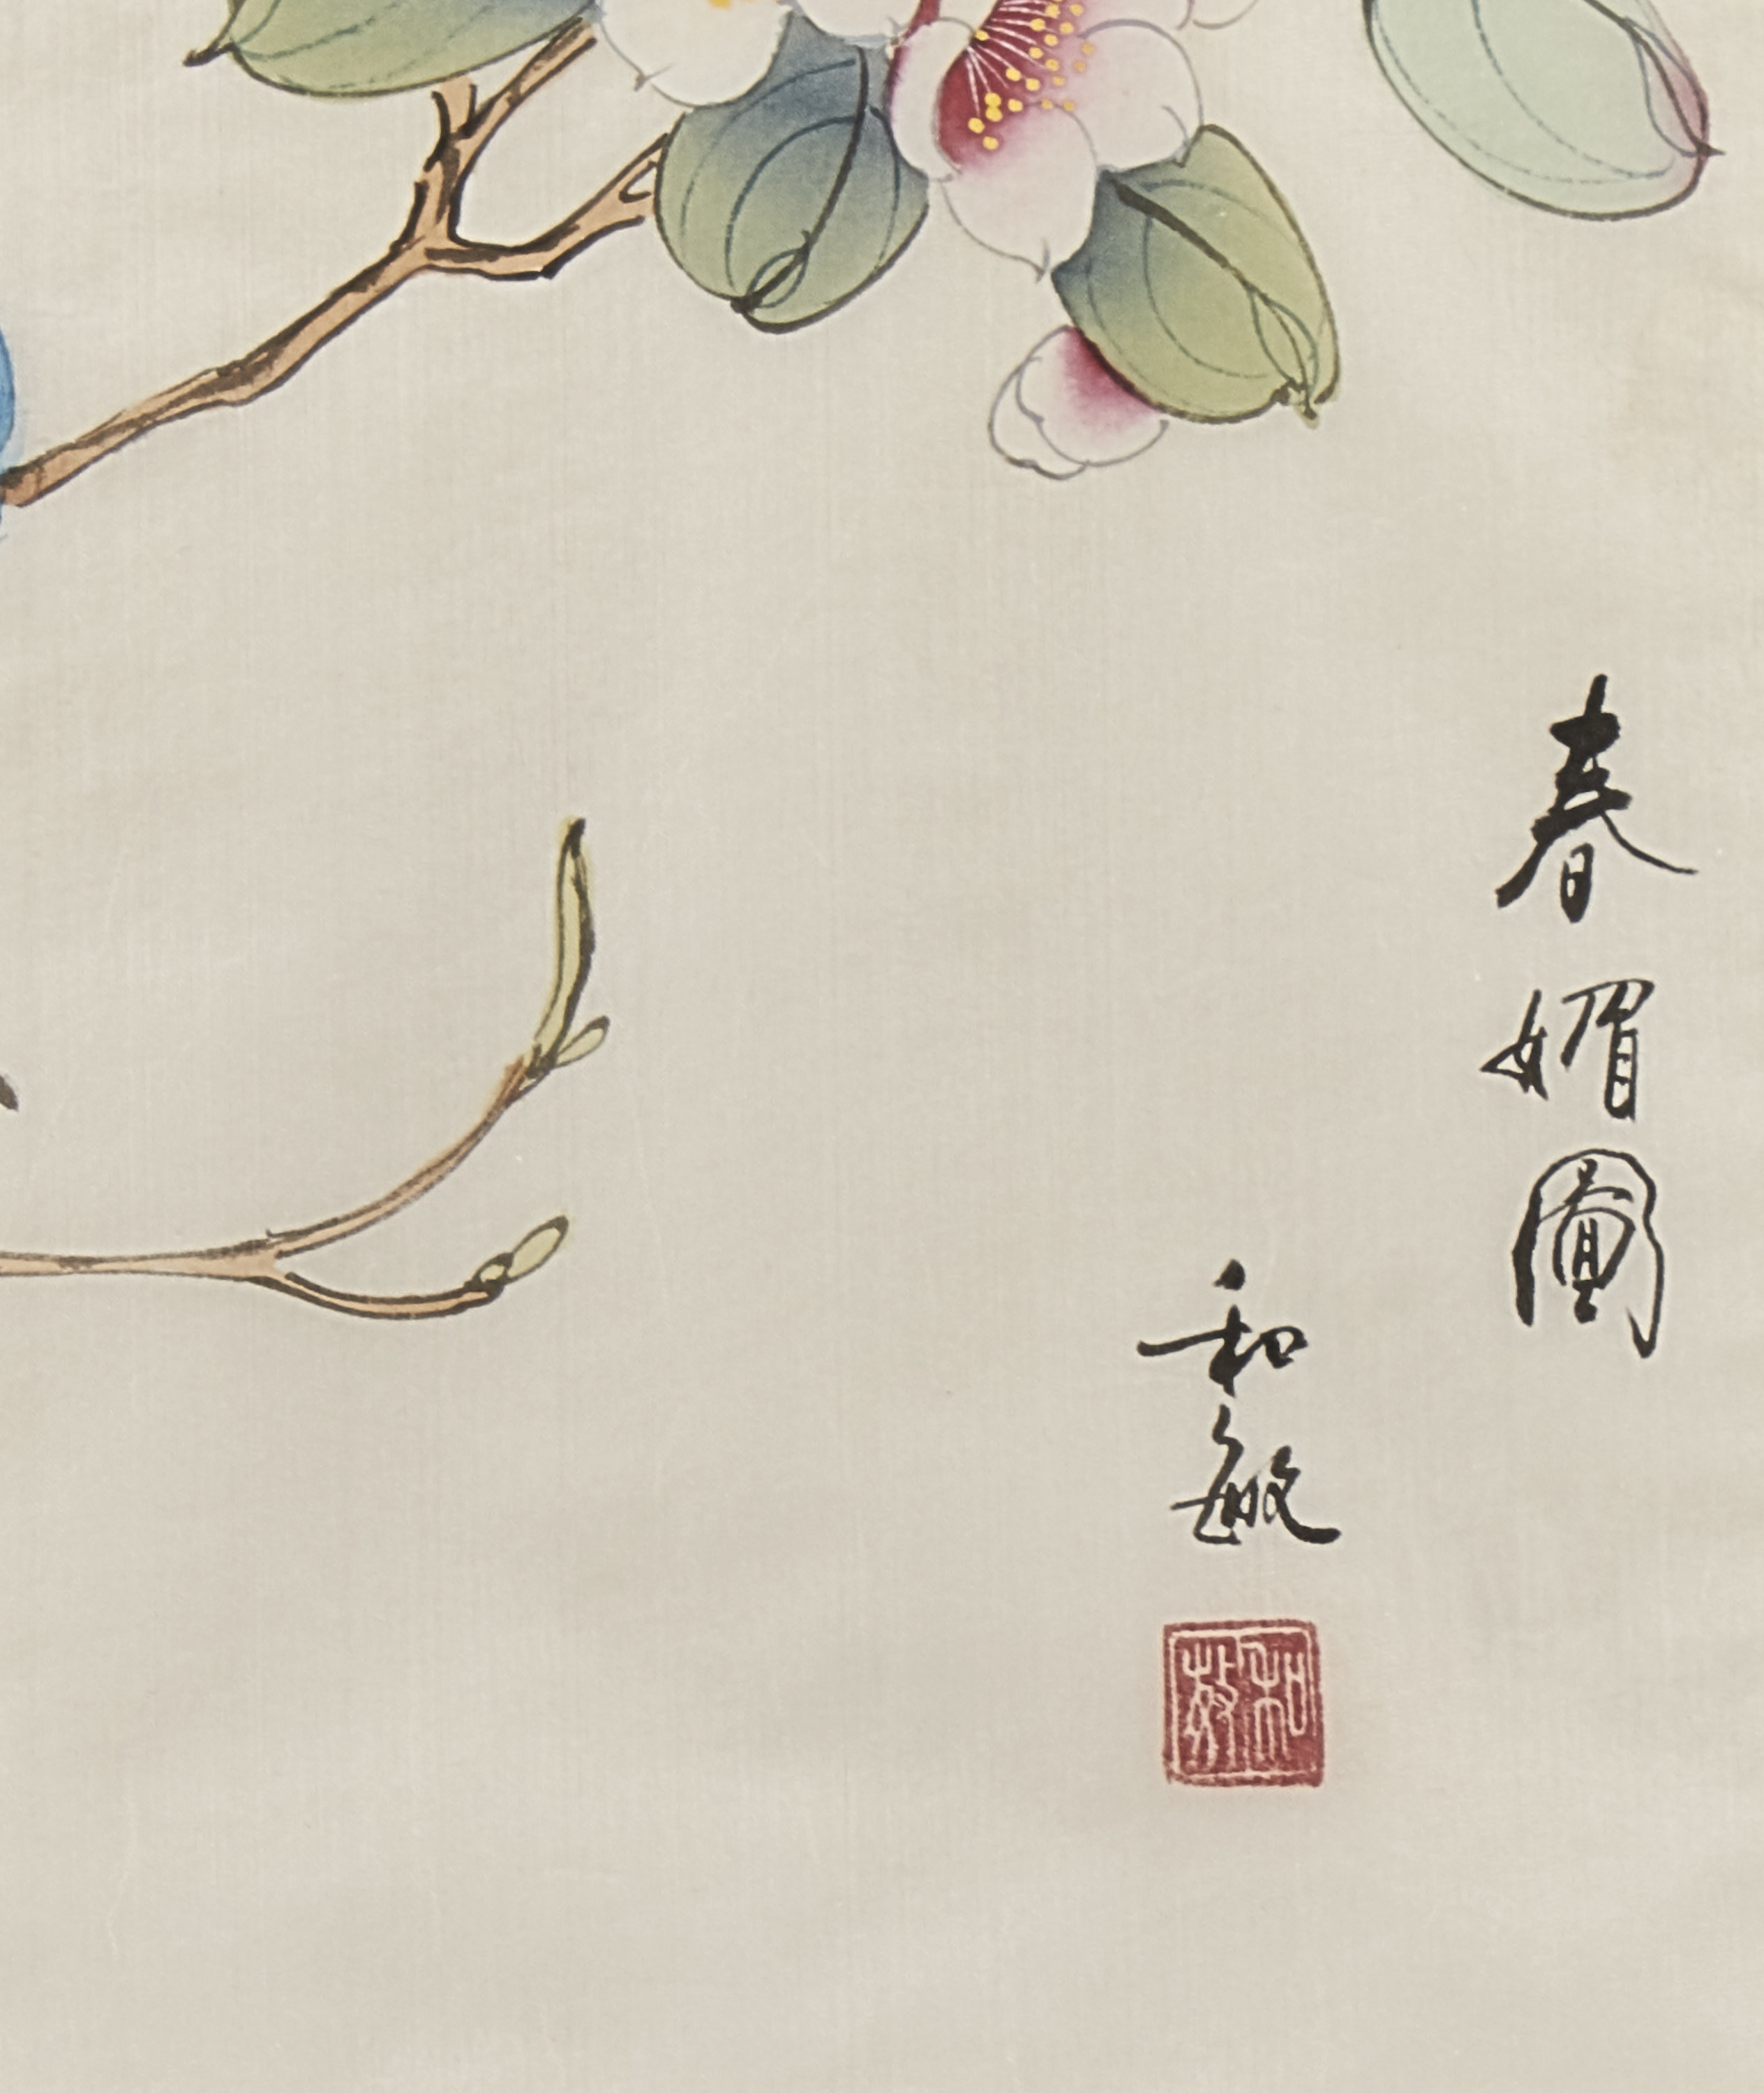 春媚圖
和敏
和敏